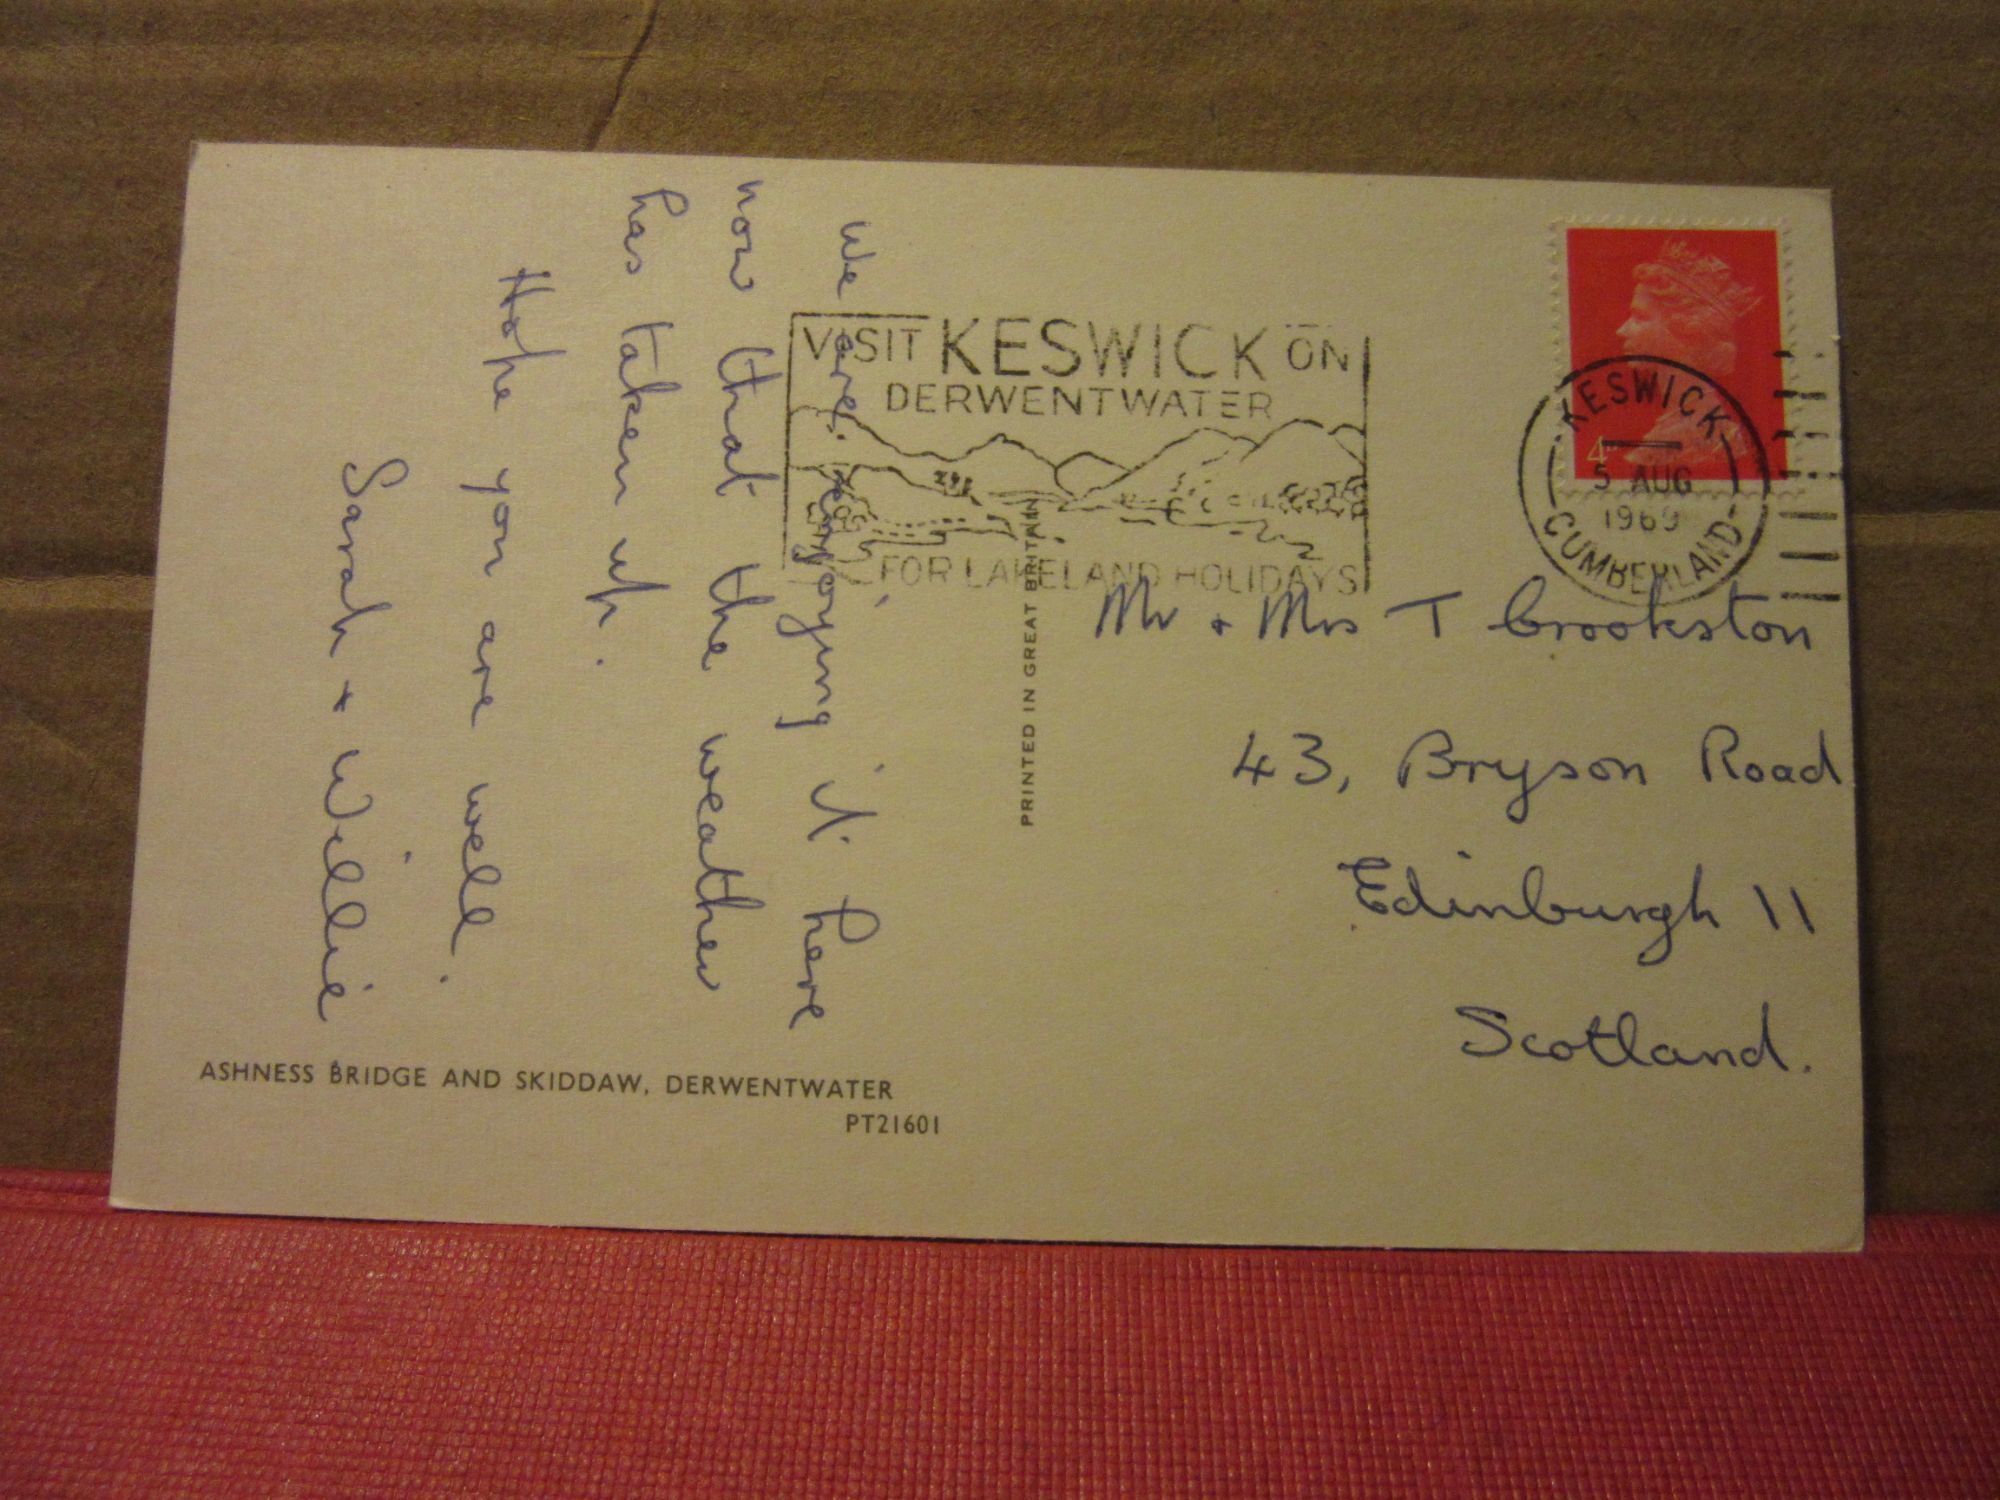 We are enjoying it here
now that the weather
has taken up.
Hope you are well.
Sarah + Willie
ASHNESS BRIDGE AND SKIDDAW, DERWENTWATER
PT21601
PRINTED IN GREAT BRITAIN
VISIT KESWICK ON
DERWENTWATER
FOR LAKELAND HOLIDAYS
4D
KESWICK
5 AUG
1969
CUMBERLAND
Mr + Mrs T Crookston
43, Bryson Road
Edinburgh 11
Scotland.